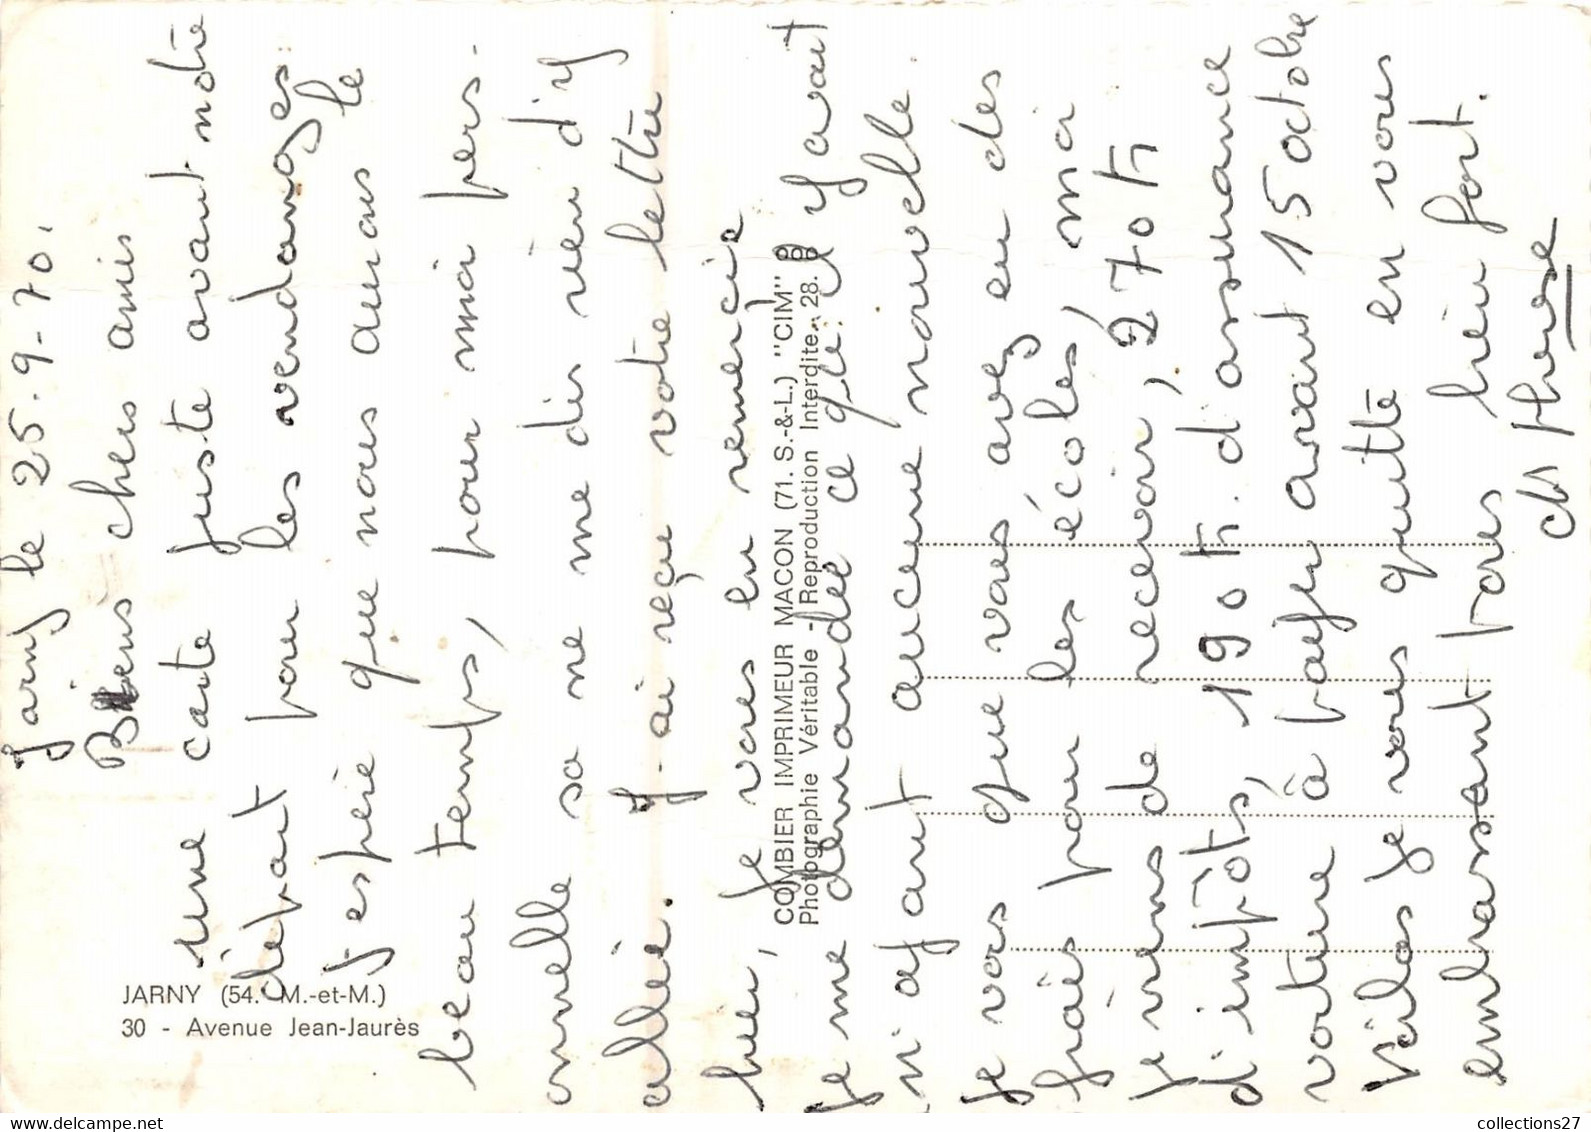 Jarny le 25-9-70.
Biens chers amis
une carte juste avant notre
départ pour les vendanges.
J'espère que nous aurons le
beau temps, pour moi pers-
onnelle sa ne me dis rien d'y
allée. J-ai reçu votre lettre
hier, je vous en remercie
je me demandée ce qu'il y avait
n'ayant aucune nouvelle.
Je vois que vous avez eu des
frais pour les écoles, moi
je viens de recevoir, 270 fr
d'impôts, 190 fr. d'assurance
voiture à payer avant 15 octobre
Voilas je vous quitte en vous
embrassant tous bien fort.
JARNY (54. M.-et-M.)
30 - Avenue Jean-Jaurès
COMBIER IMPRIMEUR MACON (71. S.-&-L.) "CIM"
Photographie Véritable - Reproduction Interdite.
collections27